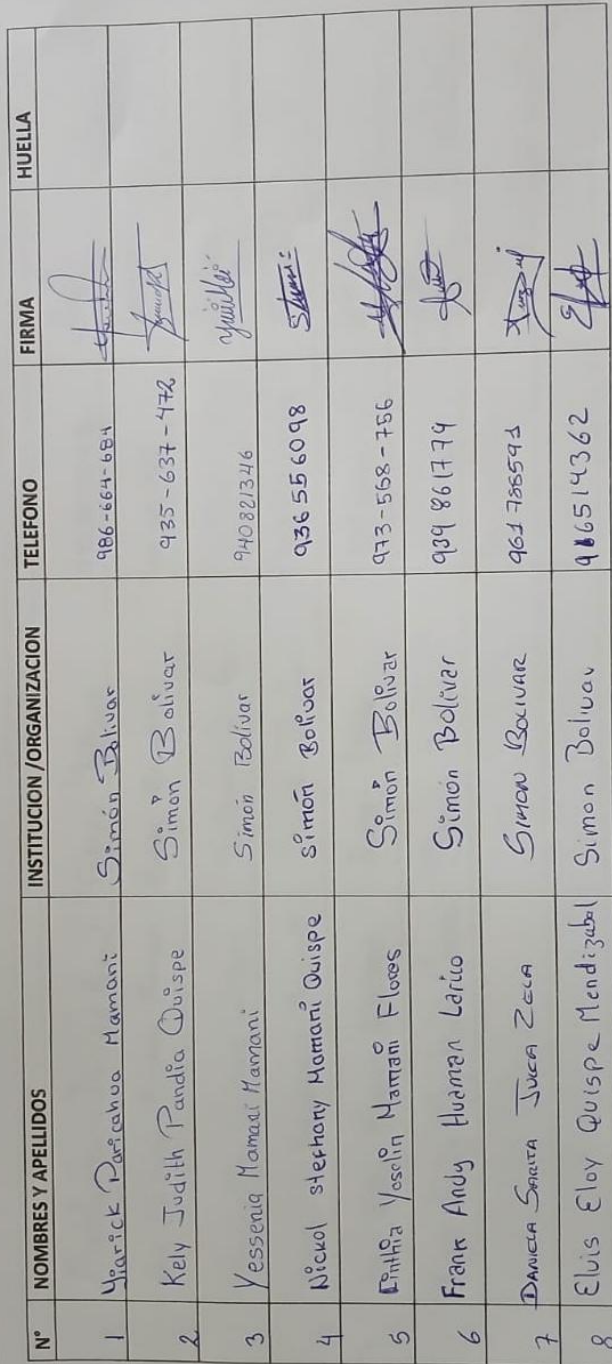 N° NOMBRES Y APELLIDOS INSTITUCION /ORGANIZACION TELEFONO FIRMA HUELLA
1 Yiarick Paricahua Mamani Simón Bolivar 986-664-684
2 Kely Judith Pandia Quispe Simón Bolivar 935-637-472
3 Yessenia Mamani Mamani Simón Bolivar 940821346
4 Nickol Stephany Mamani Quispe Simón Bolivar 936556098
5 Cinthia Yoselin Mamani Flores Simón Bolivar 973-568-756
6 Frank Andy Huaman Larico Simón Bolivar 939 861779
7 DANIELA SARITA JUCA ZELA SIMON BOLIVAR 961786591
8 Elvis Eloy Quispe Mendizabal Simon Bolivar 916514362